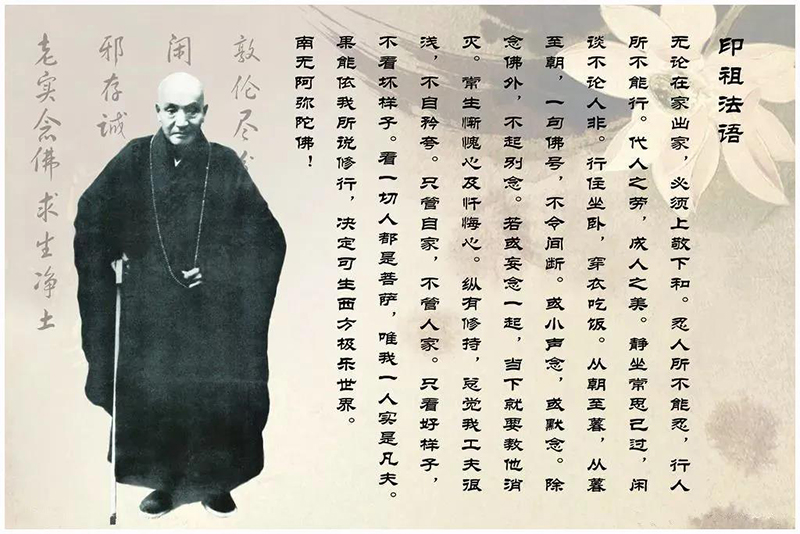 印祖法语
无论在家出家，必须上敬下和。忍人所不能忍，行人
所不能行。代人之劳，成人之美。静坐常思己过，闲
谈不论人非。行住坐卧，穿衣吃饭。从朝至暮，从暮
至朝，一句佛号，不令间断。或小声念，或默念。除
念佛外，不起别念。若或妄念一起，当下就要教他消
灭。常生惭愧心及忏悔心。纵有修持，总觉我工夫很
浅，不自矜夸。只管自家，不管人家。只看好样子，
不看坏样子。看一切人都是菩萨，唯我一人实是凡夫。
果能依我所说修行，决定可生西方极乐世界。
南无阿弥陀佛！
敦伦尽
闲
邪存诚
老实念佛求生净土